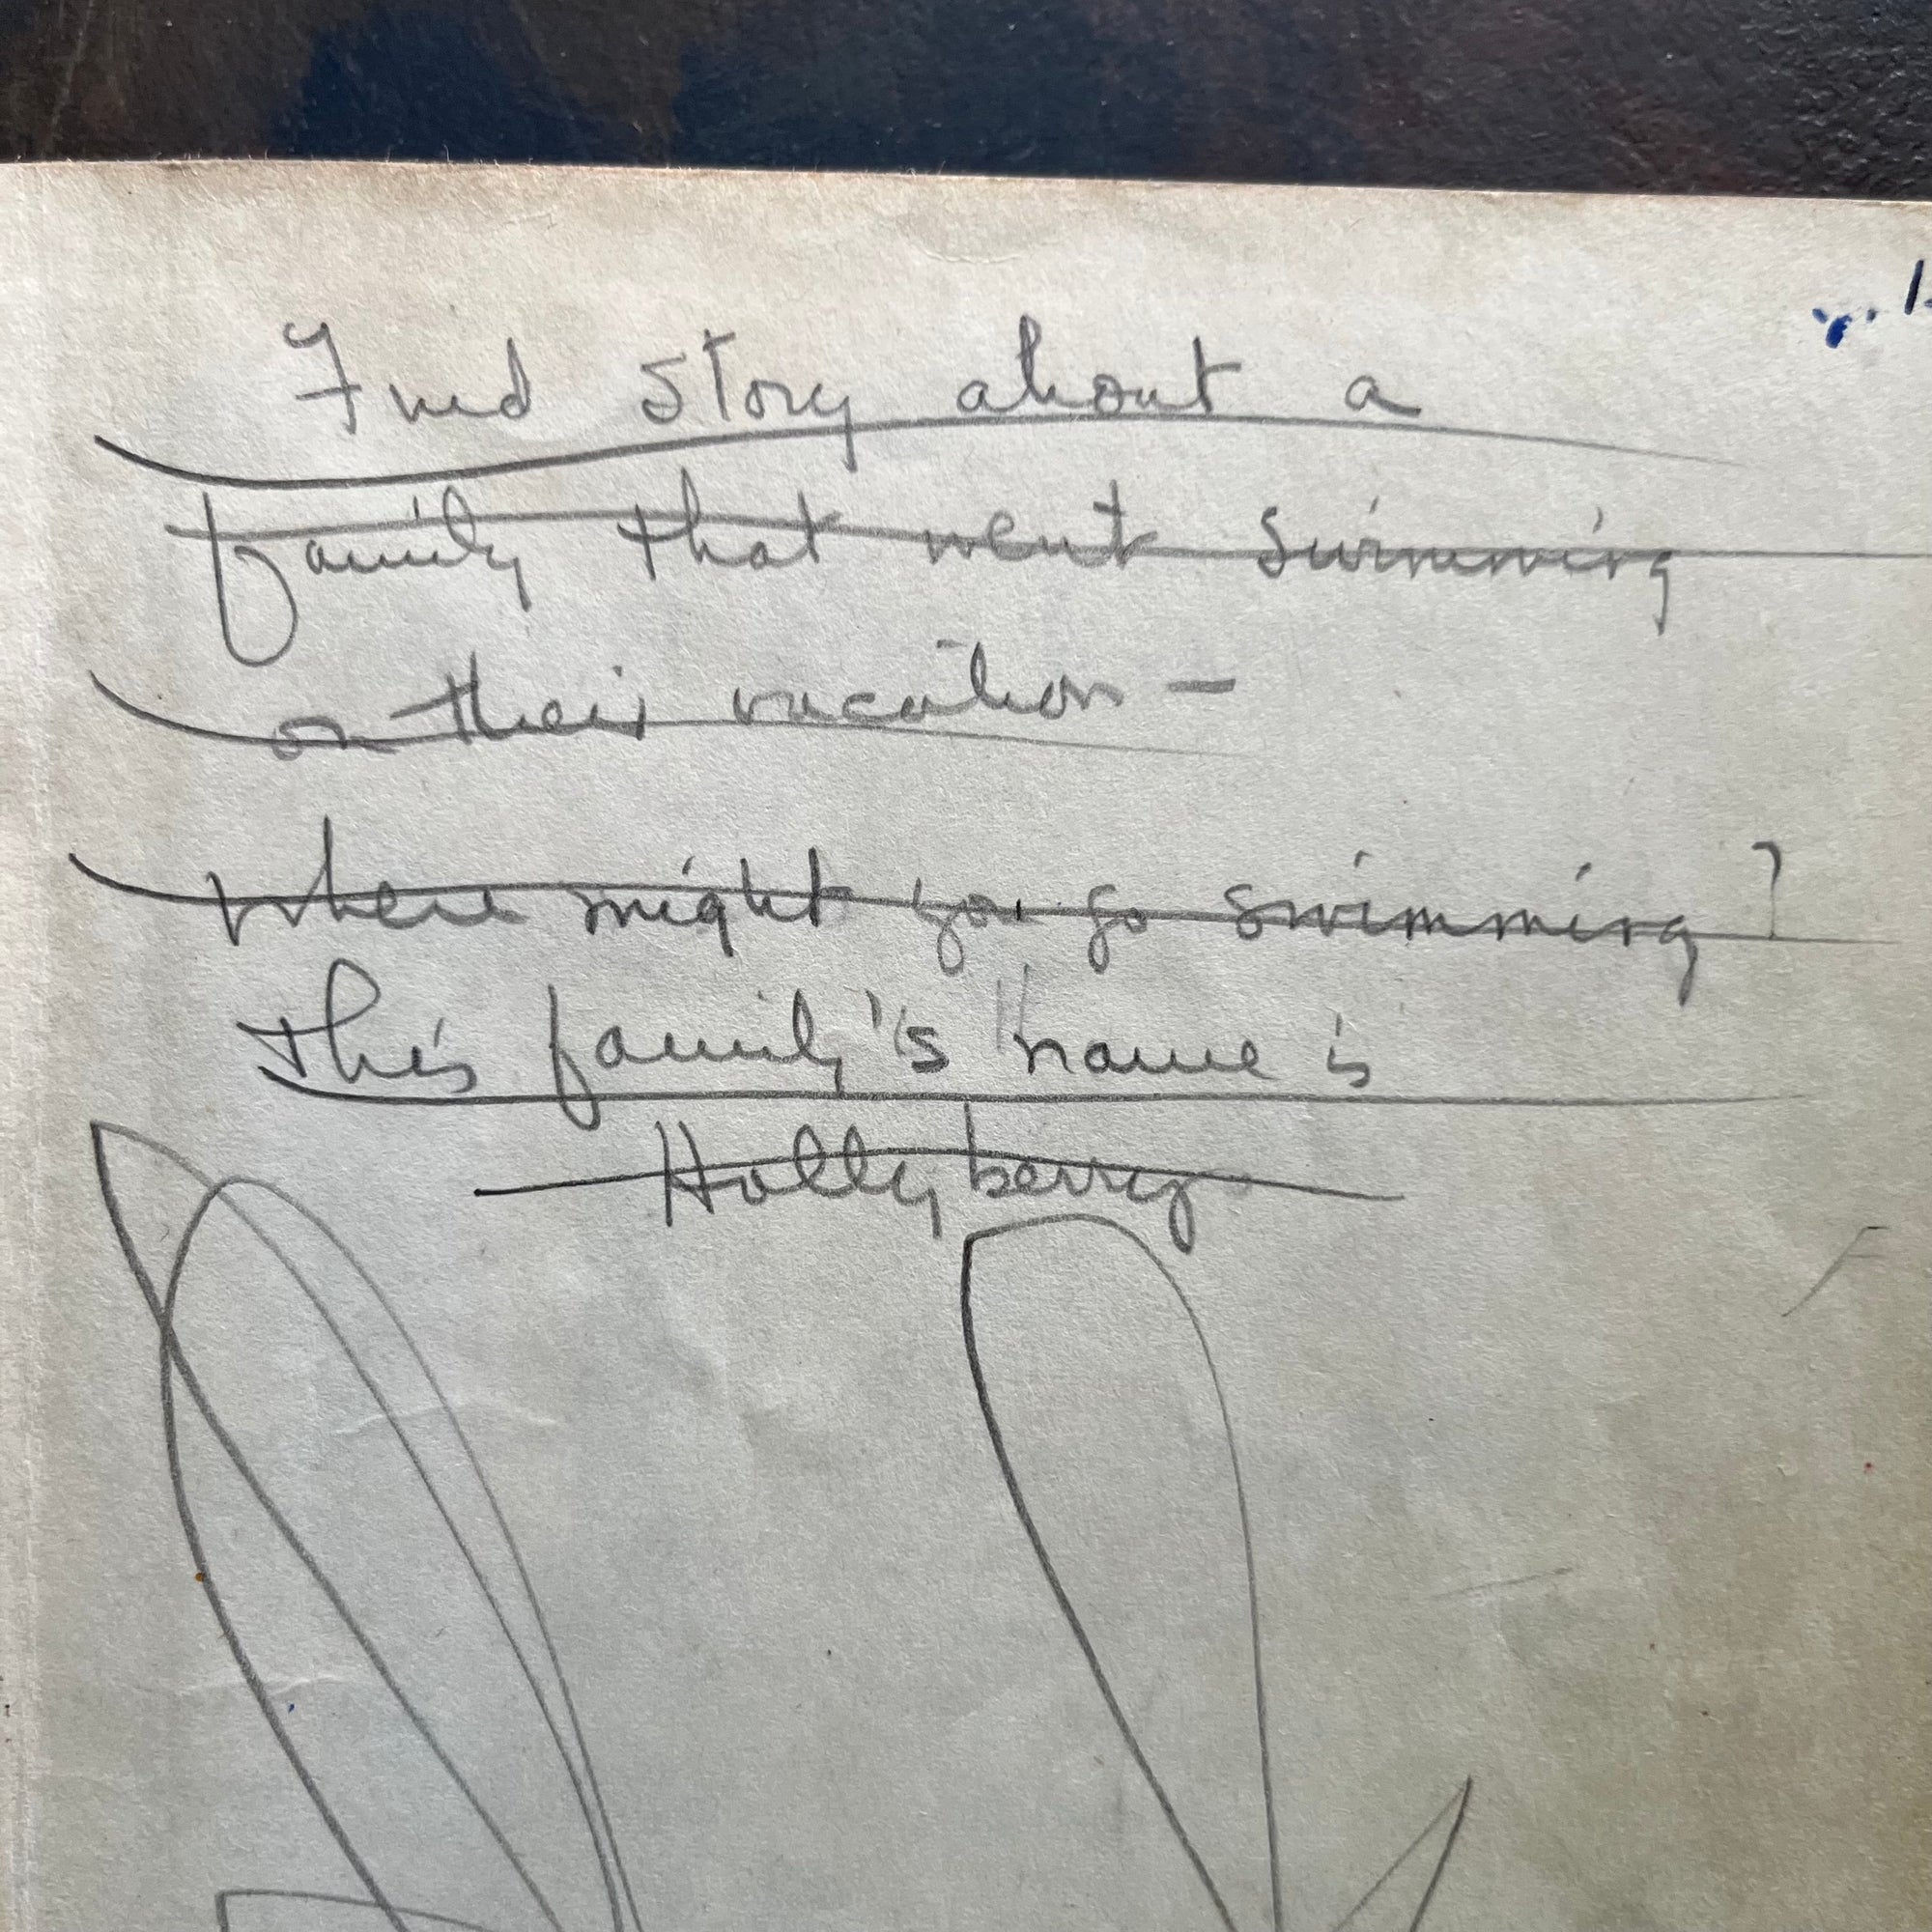 Find story about a
family that went swimming
on their vacation -
where might you go swimming?
This family's name is
Hollyberry